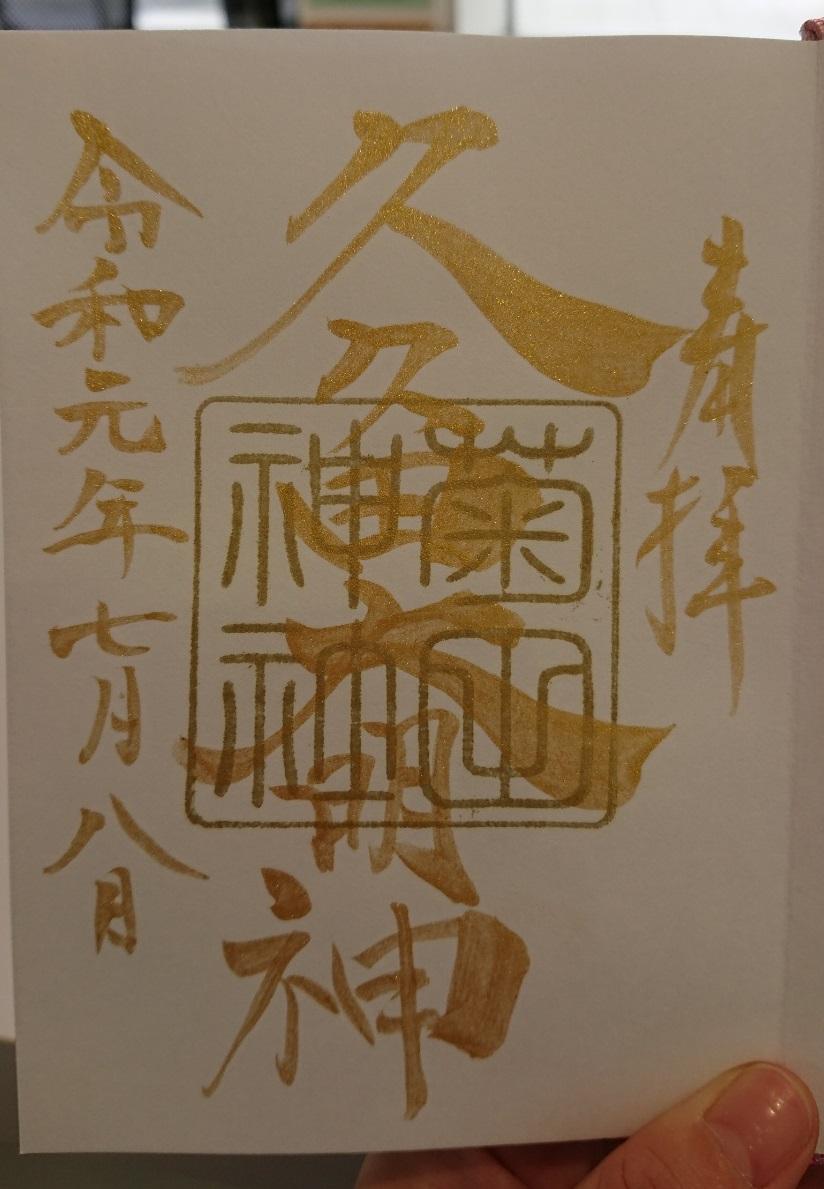 奉拝
久久田大明神
菊田
神社
令和元年七月八日